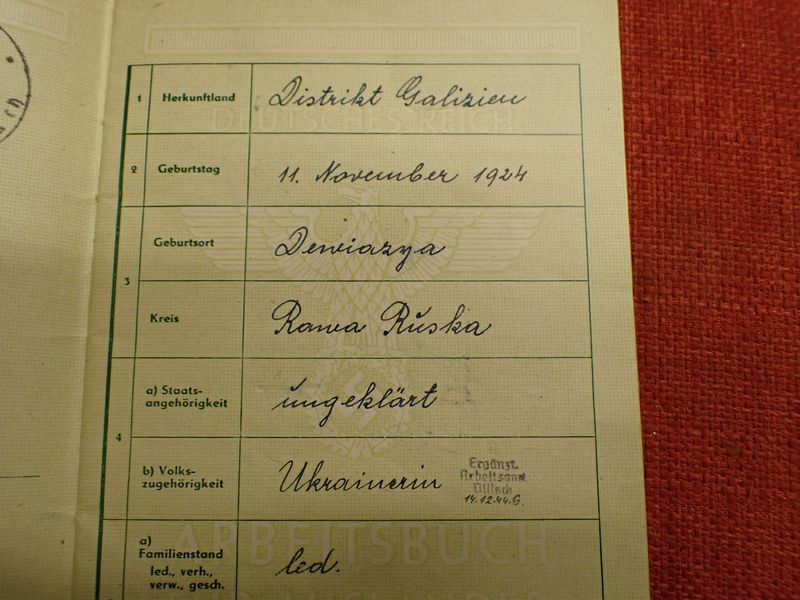 DEUTSCHES REICH
1 Herkunftland Distrikt Galizien
2 Geburtstag 11. November 1924
3 Geburtsort Dewiazya
Kreis Rawa Ruska
4 a) Staats-
angehörigkeit ungeklärt
b) Volks-
zugehörigkeit Ukrainerin
Ergänzt.
Arbeitsamt
Villach
14.12.44.G.
ARBEITSBUCH
a)
Familienstand
led., verh.,
verw., gesch. led.